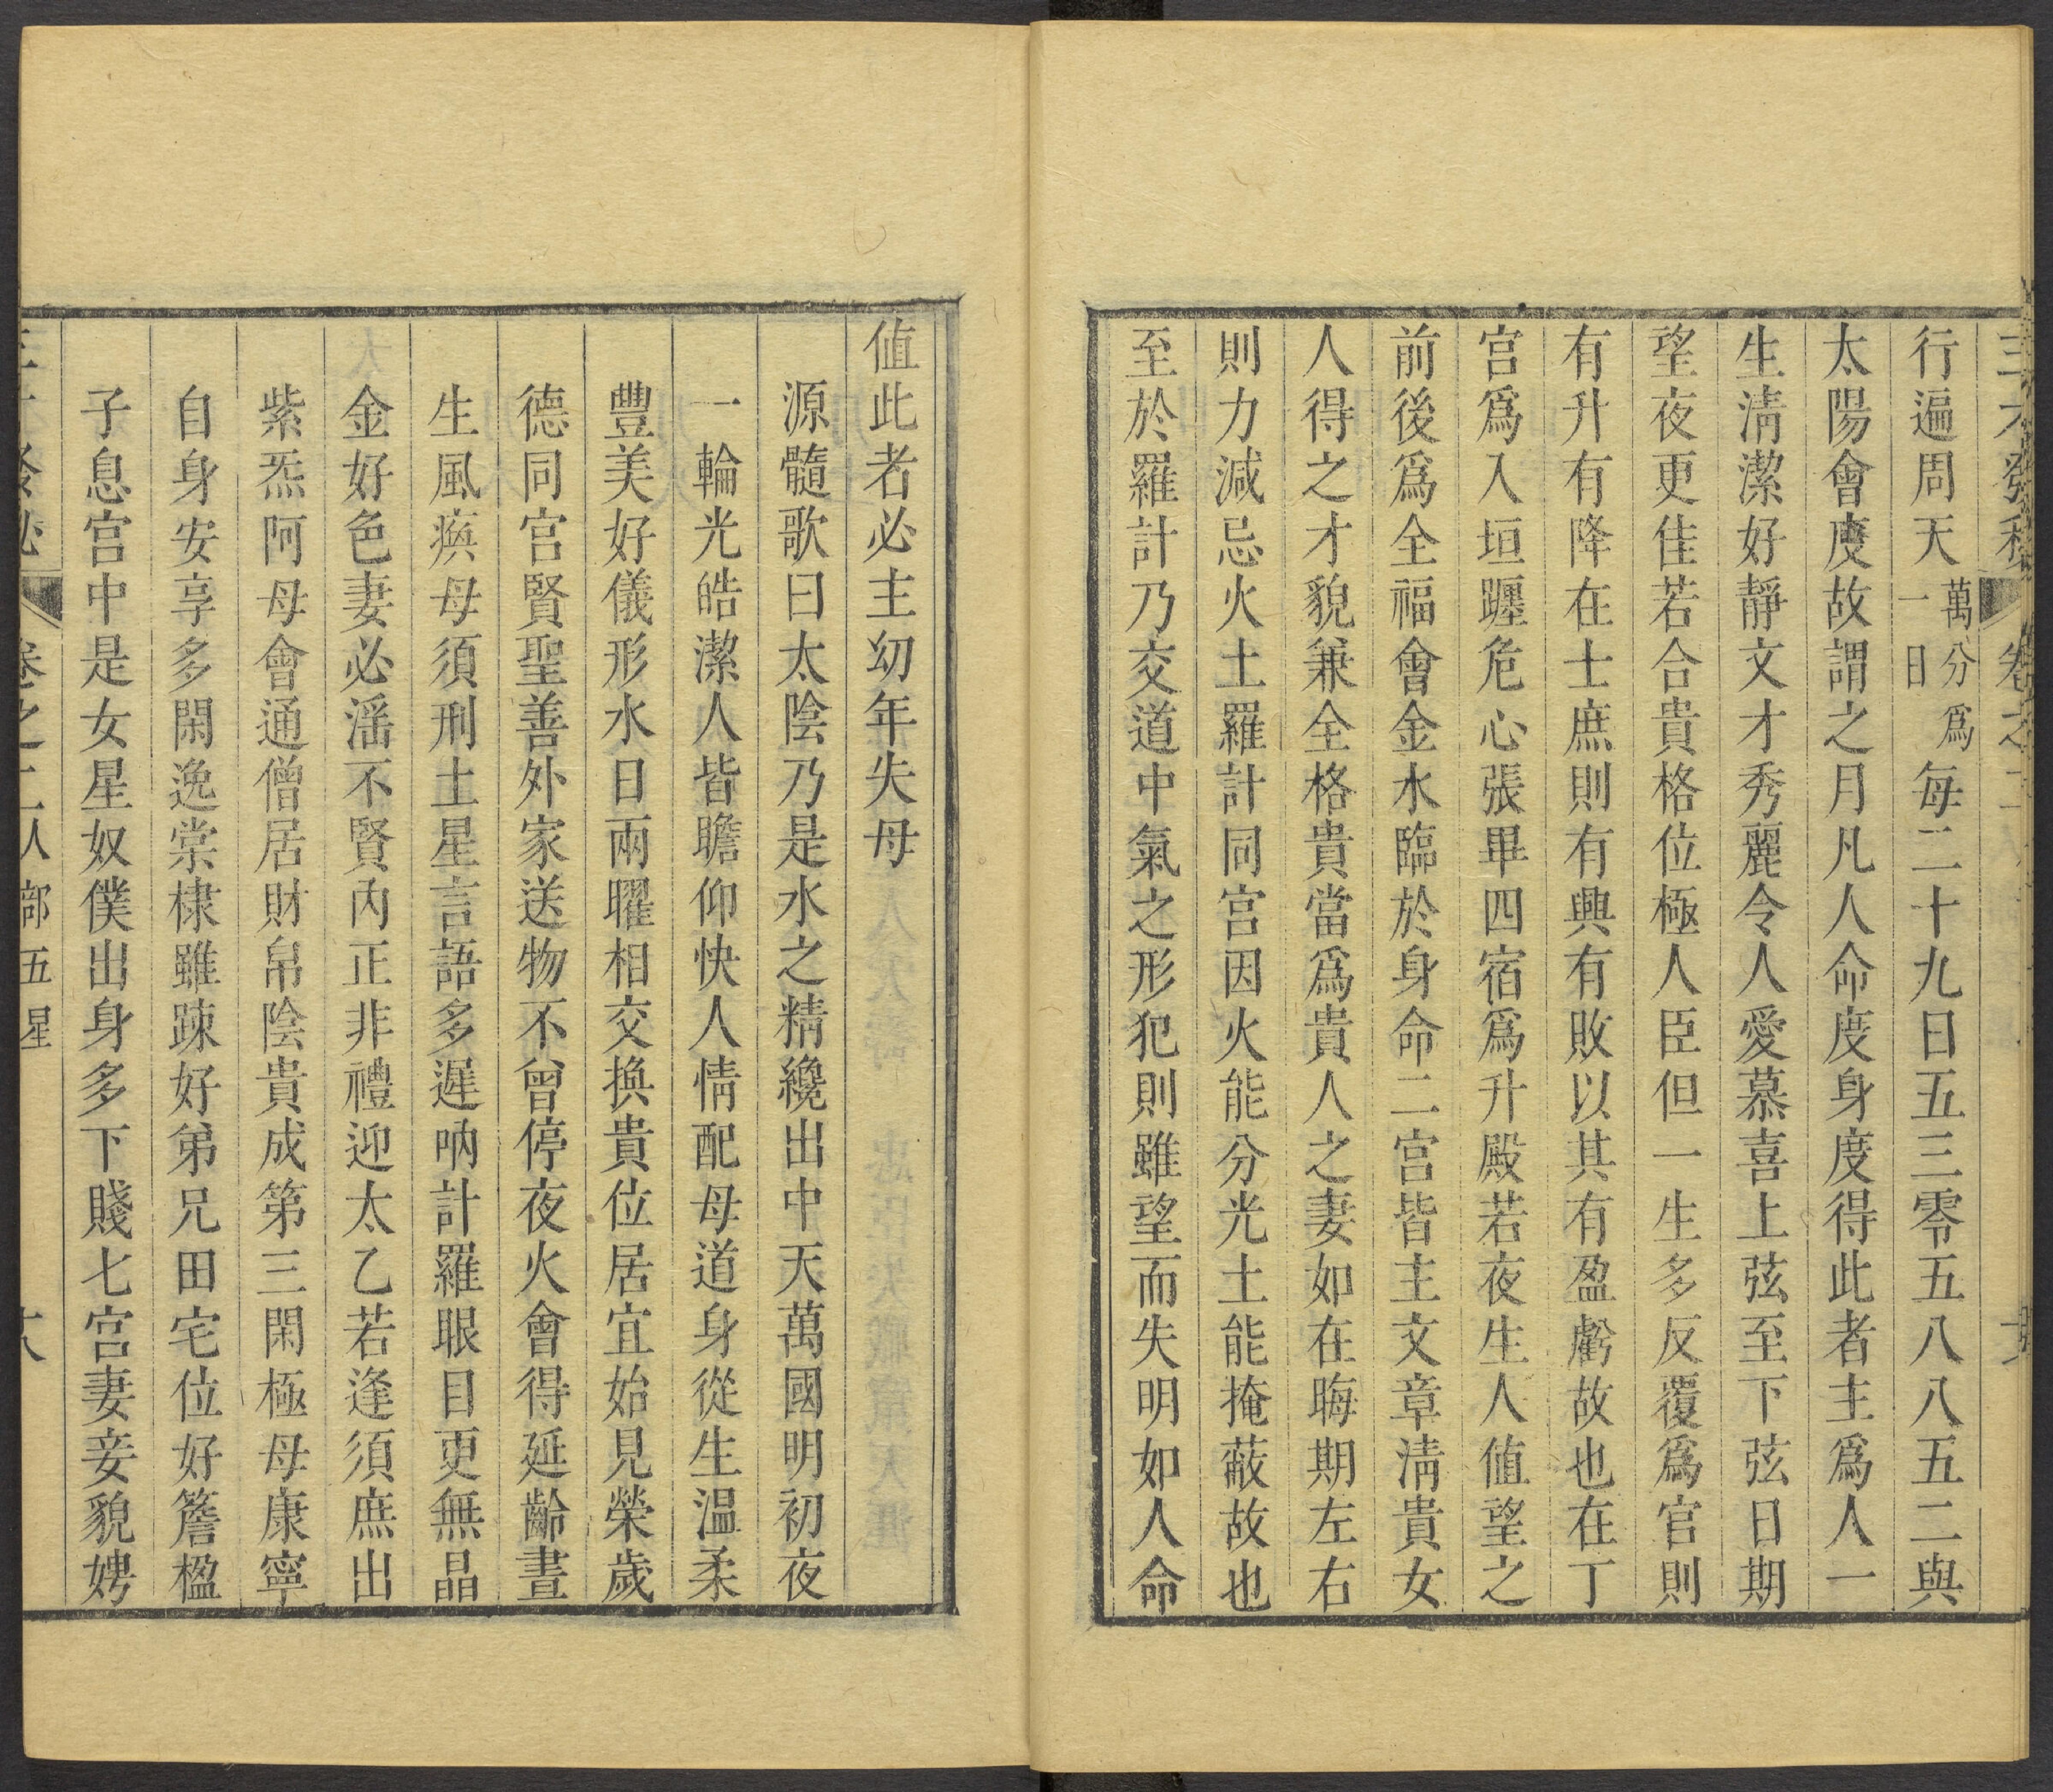 行遍周天萬分爲一日每二十九日五三零五八八五二與
太陽會度故謂之月凡人命度身度得此者主爲人一
生淸潔好靜文才秀麗令人愛慕喜上弦至下弦日期
望夜更佳若合貴格位極人臣但一生多反覆爲官則
有升有降在士庶則有興有敗以其有盈虧故也在丁
宮爲入垣躔危心張畢四宿爲升殿若夜生人值望之
前後爲全福會金水臨於身命二宮皆主文章淸貴女
人得之才貌兼全格貴當爲貴人之妻如在晦期左右
則力減忌火土羅計同宮因火能分光土能掩蔽故也
至於羅計乃交道中氣之形犯則雖望而失明如人命
值此者必主幼年失母
源髓歌曰太陰乃是水之精纔出中天萬國明初夜
一輪光皓潔人皆瞻仰快人情配母道身從生溫柔
豐美好儀形水日兩曜相交換貴位居宜始見榮歲
德同宮賢聖善外家送物不曾停夜火會得延齡晝
生風痶母須刑土星言語多遲吶計羅眼目更無晶
金好色妻必滛不賢內正非禮迎太乙若逢須庶出
紫炁阿母會通僧居財帛陰貴成第三閑極母康寧
自身安享多閑逸棠棣雖踈好弟兄田宅位好簷楹
子息宮中是女星奴僕出身多下賤七宮妻妾貌娉
卷之二人部五星